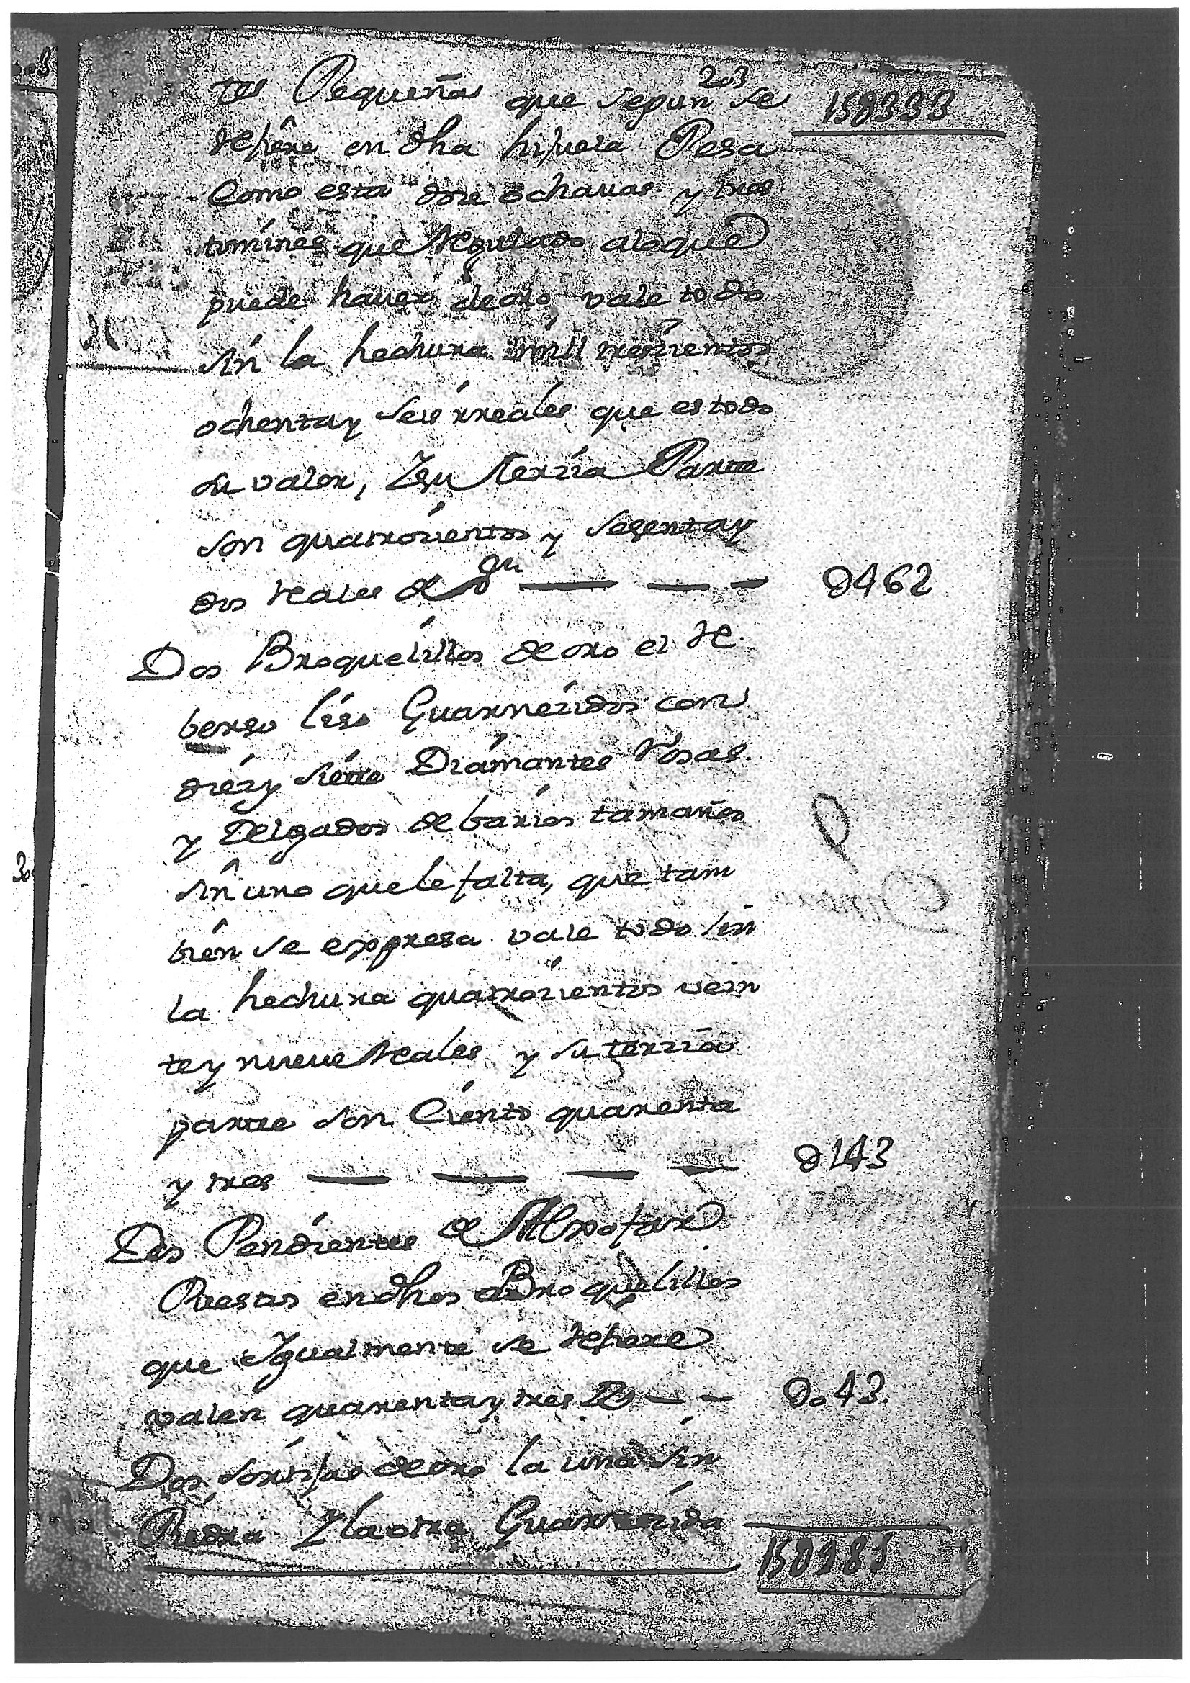 203
tes Pequeñas que segun se 15U333
refiere en dha hijuela Pesa
Como esta doze ochauas y tres
tomines que regulado aloque
puede hauer de oro, vale todo
sin la hechura mill trescientos
ochenta y seis rreales que es todo
su valor, Y su terzia Parte
son quatrozientos y sesenta y
dos reales de Von U462
Dos Broquelillos de oro el re
berso liso Guarnezidos con
diez y siette Diamantes Rosas
y Delgados de barios tamaños
sin uno que le falta, que tam
bien se expresa vale todo sin
la hechura quatrozientos vein
te y nueue reales y su terzia
partte son Ciento quarenta
y tres U143
Dos Pendientes de Aljofar
Puestos en dhos Broquelillos
que Igualmente se refiere
valen quarenta y tres Rs Uo43.
Dos sortijas de oro la una sin
Piedra Y la otra Guarnezida
15U981